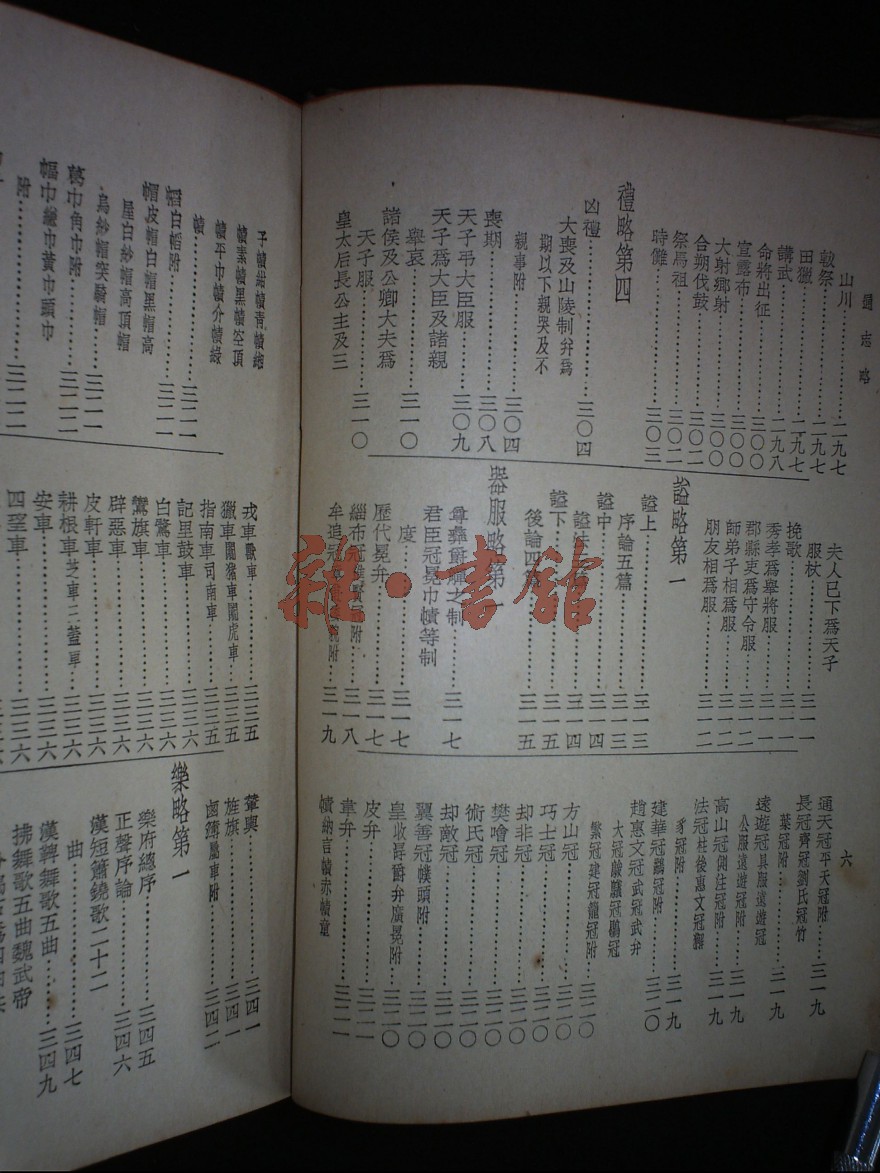 通志略
六
山川……二九七
軷祭……二九七
田獵……二九七
講武……二九八
命將出征……三〇〇
宣露布……三〇〇
大射鄉射……三〇〇
合朔伐鼓……三〇二
祭馬祖……三〇二
時儺……三〇三
禮略第四
凶禮……三〇四
大喪及山陵制并爲
期以下親哭及不
親事附……三〇四
喪期……三〇八
天子弔大臣服……三〇九
天子爲大臣及諸親
舉哀……三一〇
諸侯及公卿大夫爲
天子服……三一〇
皇太后長公主及三
夫人已下爲天子
服杖……三一一
挽歌……三一一
秀孝爲舉將服……三一一
郡縣吏爲守令服……三一一
師弟子相爲服……三一二
朋友相爲服……三一二
謚略第一
謚上……三一三
序論五篇……三一三
謚中……三一四
謚法……三一四
謚下……三一五
後論四篇……三一五
器服略第一
尊彝爵觶之制……三一七
君臣冠冕巾幘等制
度……三一七
歷代冕弁……三一七
緇布冠進賢冠附……三一八
牟追冠……附……三一九
通天冠平天冠附……三一九
長冠齊冠劉氏冠竹
葉冠附……三一九
遠遊冠具服遠遊冠
公服遠遊冠附……三一九
高山冠側注冠附……三一九
法冠柱後惠文冠獬
豸冠附……三一九
建華冠鷸冠附……三二〇
趙惠文冠武冠武弁
大冠鵔鸃冠鶡冠
繁冠建冠籠冠附……三二〇
方山冠……三二〇
巧士冠……三二〇
却非冠……三二〇
樊噲冠……三二〇
術氏冠……三二〇
却敵冠……三二〇
翼善冠幞頭附……三二〇
皇收冔爵弁廣冕附……三二〇
皮弁……三二一
韋弁……三二一
幘納言幘赤幘童
子幘紺幘青幘緗
幘素幘黑幘空頂
幘平巾幘介幘綠
幘……三二一
帽白帢附……三二一
帽皮帽白帽黑帽高
屋白紗帽高頂帽
烏紗帽突騎帽……三二一
葛巾角巾附……三二二
幅巾縑巾黃巾頭巾
附……三二二
戎車戰車……三三五
獵車闟猪車闟虎車……三三五
指南車司南車……三三五
記里鼓車……三三六
白鷺車……三三六
鸞旗車……三三六
辟惡車……三三六
皮軒車……三三六
耕根車芝車三蓋車……三三六
安車……三三六
四望車……三三六
輦輿……三四一
旌旗……三四一
鹵簿屬車附……三四二
樂略第一
樂府總序……三四五
正聲序論……三四六
漢短簫鐃歌二十二
曲……三四七
漢鞞舞歌五曲……三四九
拂舞歌五曲魏武帝
雜·書館